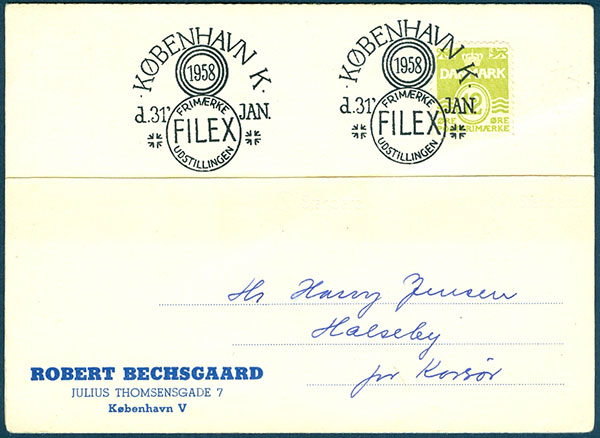 KØBENHAVN K.
1958
d. 31' JAN.
FRIMÆRKE
FILEX
UDSTILLINGEN
KØBENHAVN K.
1958
d. 31' JAN.
FRIMÆRKE
FILEX
UDSTILLINGEN
DANMARK
12
ØRE ØRE
FRIMÆRKE
Hr Harry Jensen
Halseby
pr Korsør
ROBERT BECHSGAARD
JULIUS THOMSENSGADE 7
København V